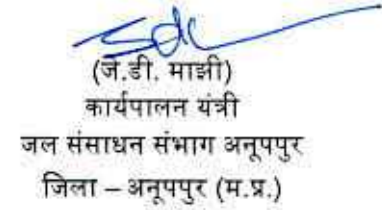 (जे.डी. माझी)
कार्यपालन यंत्री
जल संसाधन संभाग अनूपपुर
जिला – अनूपपुर (म.प्र.)